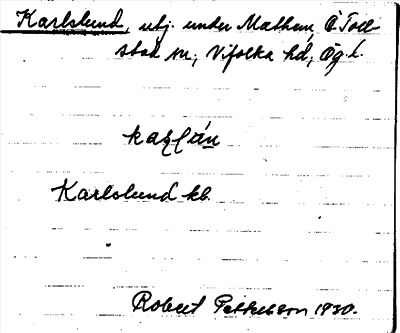 Karlslund, utj. under Mathem, Ö. Toll-
stad sn, Vifolka hd, Ög. l.
Karlslund kb.
Robert Pettersson 1930.